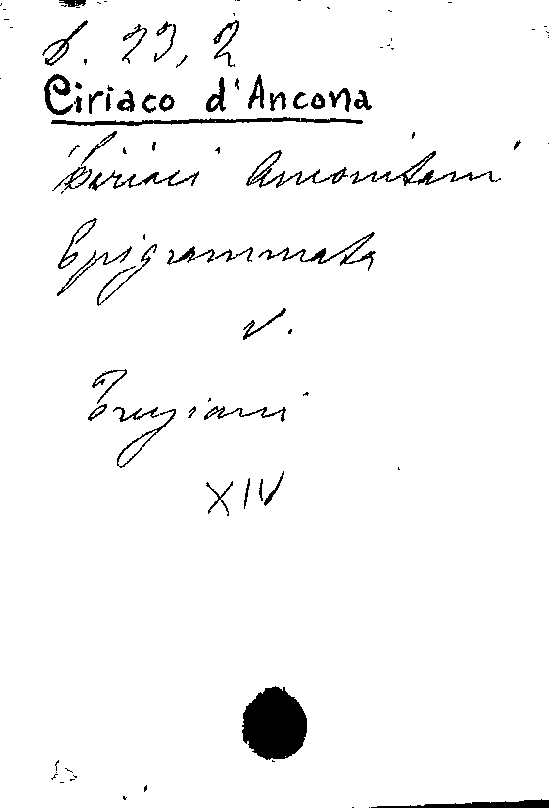 S. 23, 2
Ciriaco d'Ancona
Ciriaci Anconitani
Epigrammata
v.
Truziani
XIV